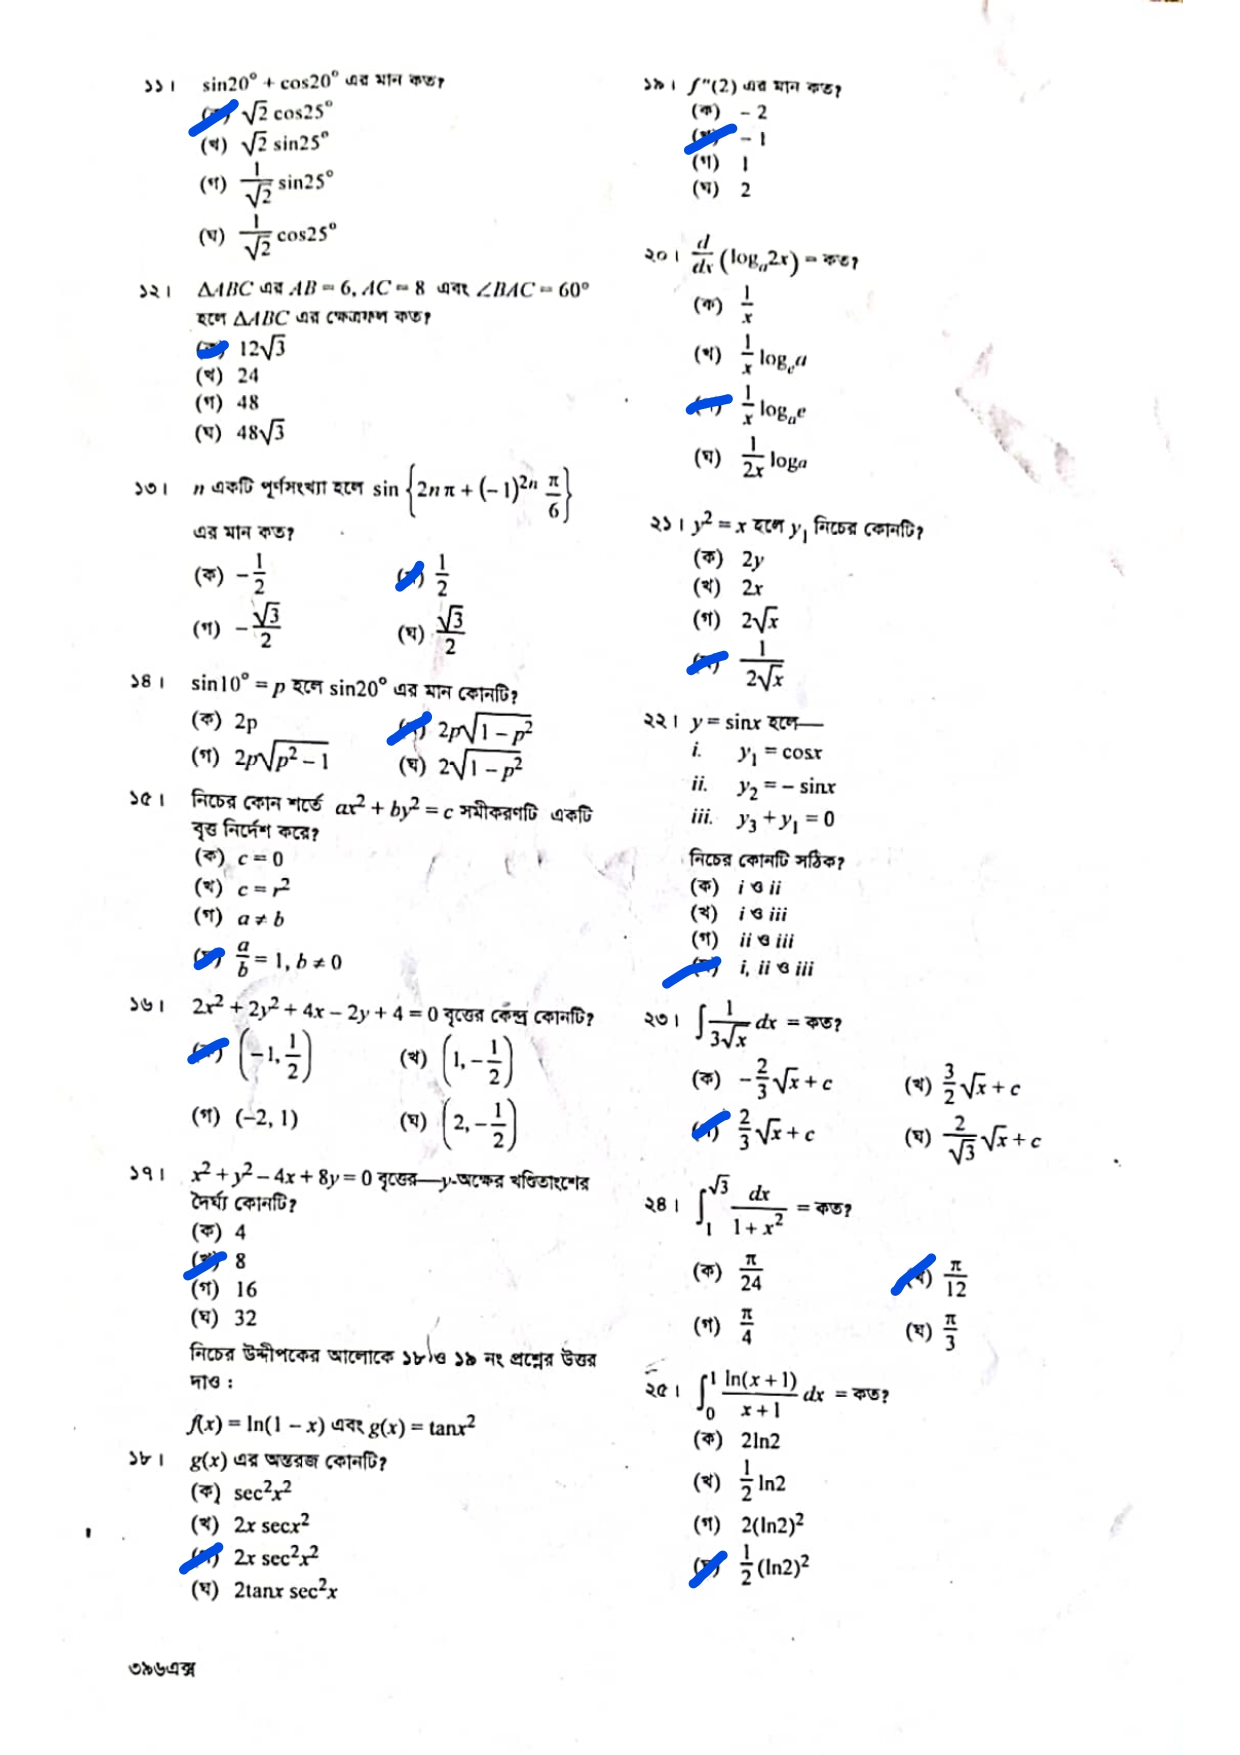 ১১। sin20° + cos20° এর মান কত?
√2 cos25°
(খ) √2 sin25°
(গ) 1/√2 sin25°
(ঘ) 1/√2 cos25°
১২। ΔABC এর AB = 6, AC = 8 এবং ∠BAC = 60°
হলে ΔABC এর ক্ষেত্রফল কত?
12√3
(খ) 24
(গ) 48
(ঘ) 48√3
১৩। n একটি পূর্ণসংখ্যা হলে sin {2nπ + (−1)²ⁿ π/6}
এর মান কত?
(ক) −1/2 1/2
(গ) −√3/2 (ঘ) √3/2
১৪। sin10° = p হলে sin20° এর মান কোনটি?
(ক) 2p 2p√(1 − p²)
(গ) 2p√(p² − 1) (ঘ) 2√(1 − p²)
১৫। নিচের কোন শর্তে ax² + by² = c সমীকরণটি একটি
বৃত্ত নির্দেশ করে?
(ক) c = 0
(খ) c = r²
(গ) a ≠ b
a/b = 1, b ≠ 0
১৬। 2x² + 2y² + 4x − 2y + 4 = 0 বৃত্তের কেন্দ্র কোনটি?
(−1, 1/2) (খ) (1, −1/2)
(গ) (−2, 1) (ঘ) (2, −1/2)
১৭। x² + y² − 4x + 8y = 0 বৃত্তের—y-অক্ষের খণ্ডিতাংশের
দৈর্ঘ্য কোনটি?
(ক) 4
8
(গ) 16
(ঘ) 32
নিচের উদ্দীপকের আলোকে ১৮ ও ১৯ নং প্রশ্নের উত্তর
দাও :
f(x) = ln(1 − x) এবং g(x) = tanx²
১৮। g(x) এর অন্তরজ কোনটি?
(ক) sec²x²
(খ) 2x secx²
2x sec²x²
(ঘ) 2tanx sec²x
৩৯৬এক্স
১৯। f″(2) এর মান কত?
(ক) − 2
− 1
(গ) 1
(ঘ) 2
২০। d/dx (logₐ2x) = কত?
(ক) 1/x
(খ) 1/x logₑa
1/x logₐe
(ঘ) 1/2x loga
২১। y² = x হলে y₁ নিচের কোনটি?
(ক) 2y
(খ) 2x
(গ) 2√x
1/2√x
২২। y = sinx হলে—
i. y₁ = cosx
ii. y₂ = − sinx
iii. y₃ + y₁ = 0
নিচের কোনটি সঠিক?
(ক) i ও ii
(খ) i ও iii
(গ) ii ও iii
i, ii ও iii
২৩। ∫ 1/3√x dx = কত?
(ক) −2/3 √x + c (খ) 3/2 √x + c
2/3 √x + c (ঘ) 2/√3 √x + c
২৪। ∫₁^√3 dx/(1 + x²) = কত?
(ক) π/24 π/12
(গ) π/4 (ঘ) π/3
২৫। ∫₀¹ ln(x + 1)/(x + 1) dx = কত?
(ক) 2ln2
(খ) 1/2 ln2
(গ) 2(ln2)²
1/2 (ln2)²